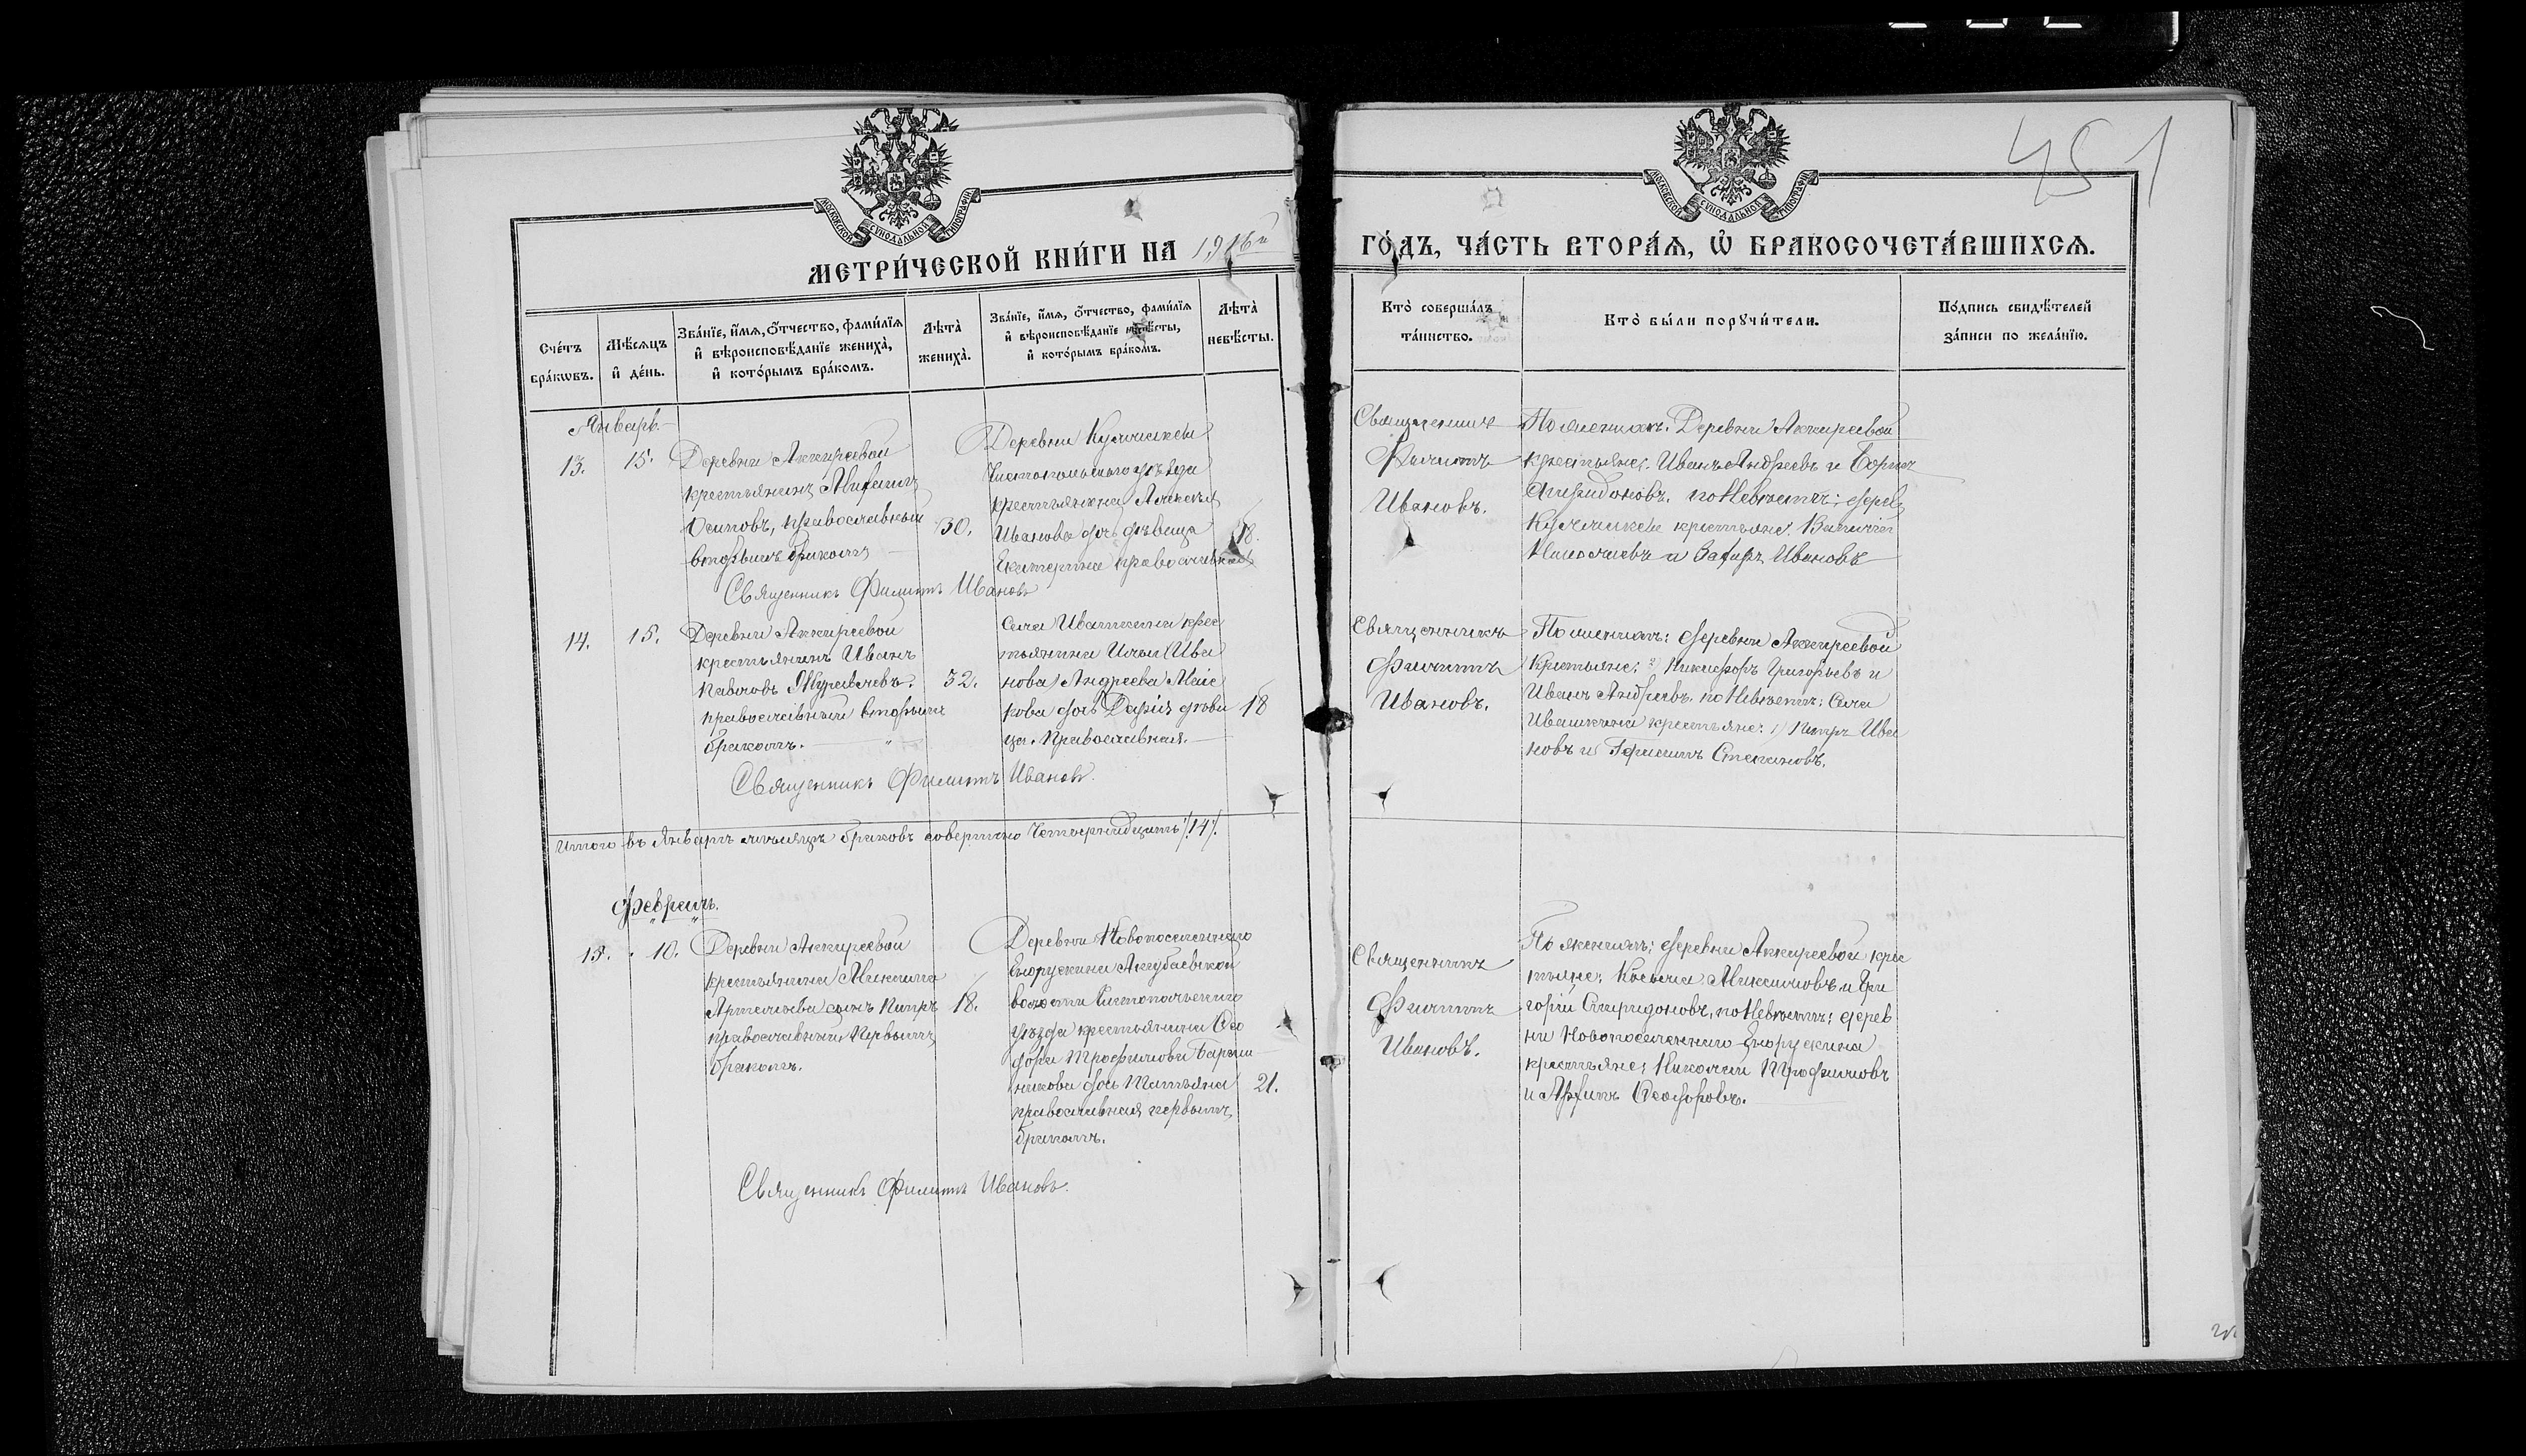 451
МОСКОВСКОЙ СѴНОДАЛЬНОЙ ТИПОГРАФІИ
МОСКОВСКОЙ СѴНОДАЛЬНОЙ ТИПОГРАФІИ
МЕТРИ́ЧЕСКОЙ КНИ́ГИ НА 1916й ГО́ДЪ, ЧА́СТЬ ВТОРА́Я, Ѡ҆ БРАКОСОЧЕТА́ВШИХСѦ.
Сче́тъ бра́кѡвъ.
Мѣ́сяцъ и҆ де́нь.
Зва́нїе, и҆́мя, ѻ҆́тчество, фами́лїя
и҆ вѣроисповѣ́данїе жениха̀,
и҆ кото́рымъ бра́комъ.
Лѣ́та̀ жениха̀.
Зва́нїе, и҆́мя, ѻ҆́тчество, фами́лїя
и҆ вѣроисповѣ́данїе невѣ́сты,
и҆ кото́рымъ бра́комъ.
Лѣ́та̀ невѣ́сты.
Кто̀ соверша́лъ та́инство.
Кто̀ бы́ли порꙋчи́тели.
По́дпись свидѣ́телей за́писи по жела́нїю.
Январь.
13. 15.
Деревни Аккиреевой
крестьянинъ Михаилъ
Осиповъ, православный
вторымъ бракомъ
30.
Деревни
Чистопольского уѣзда
крестьянина Алексѣя
Иванова дочь дѣвица
Екатерина православная
18.
Священникъ
Филиппъ
Ивановъ.
По женихѣ: Деревни Аккиреевой
крестьяне: Иванъ Андреевъ и Борисъ
Спиридоновъ. по Невѣстѣ: дерев
крестьяне:
Николаевъ и Захаръ Ивановъ
Священникъ Филиппъ Ивановъ
14. 15.
Деревни Аккиреевой
крестьянинъ Иванъ
Павловъ Журавлевъ.
православный вторымъ
бракомъ.
32.
Села Ивашкина крес
тьянина Ильи Ива
нова Андреева
дочь Дарія дѣви
ца. Православная.
18
Священникъ
Филиппъ
Ивановъ.
По женихѣ: деревни Аккиреевой
Крестьяне: Никифоръ Григорьевъ и
Иванъ Андреевъ. по Невѣстѣ: Села
Ивашкина крестьяне: 1) Петръ Ива
новъ и Герасимъ Степановъ.
Священникъ Филиппъ Ивановъ.
Итого въ Январѣ мѣсяцѣ браковъ совершено Четырнадцать /14/.
Февраль.
15. 10.
Деревни Аккиреевой
крестьянина Максима
Артемьева сынъ Петръ
православный, Первымъ
бракомъ.
18.
Деревни Новопоселеннаго
Енорускина Акубаевской
волости Чистопольского
уѣзда крестьянина Ѳео
дора Трофимова
дочь Татьяна
православная первымъ
бракомъ.
21.
Священникъ
Филиппъ
Ивановъ.
По женихѣ: деревни Аккиреевой крес
тьяне: Косьма Максимовъ и Гри
горій Спиридоновъ, по Невѣстѣ: дерев
ни Новопоселеннаго Енорускина
крестьяне: Николай Трофимовъ
и Архипъ Ѳеодоровъ.
Священникъ Филиппъ Ивановъ.